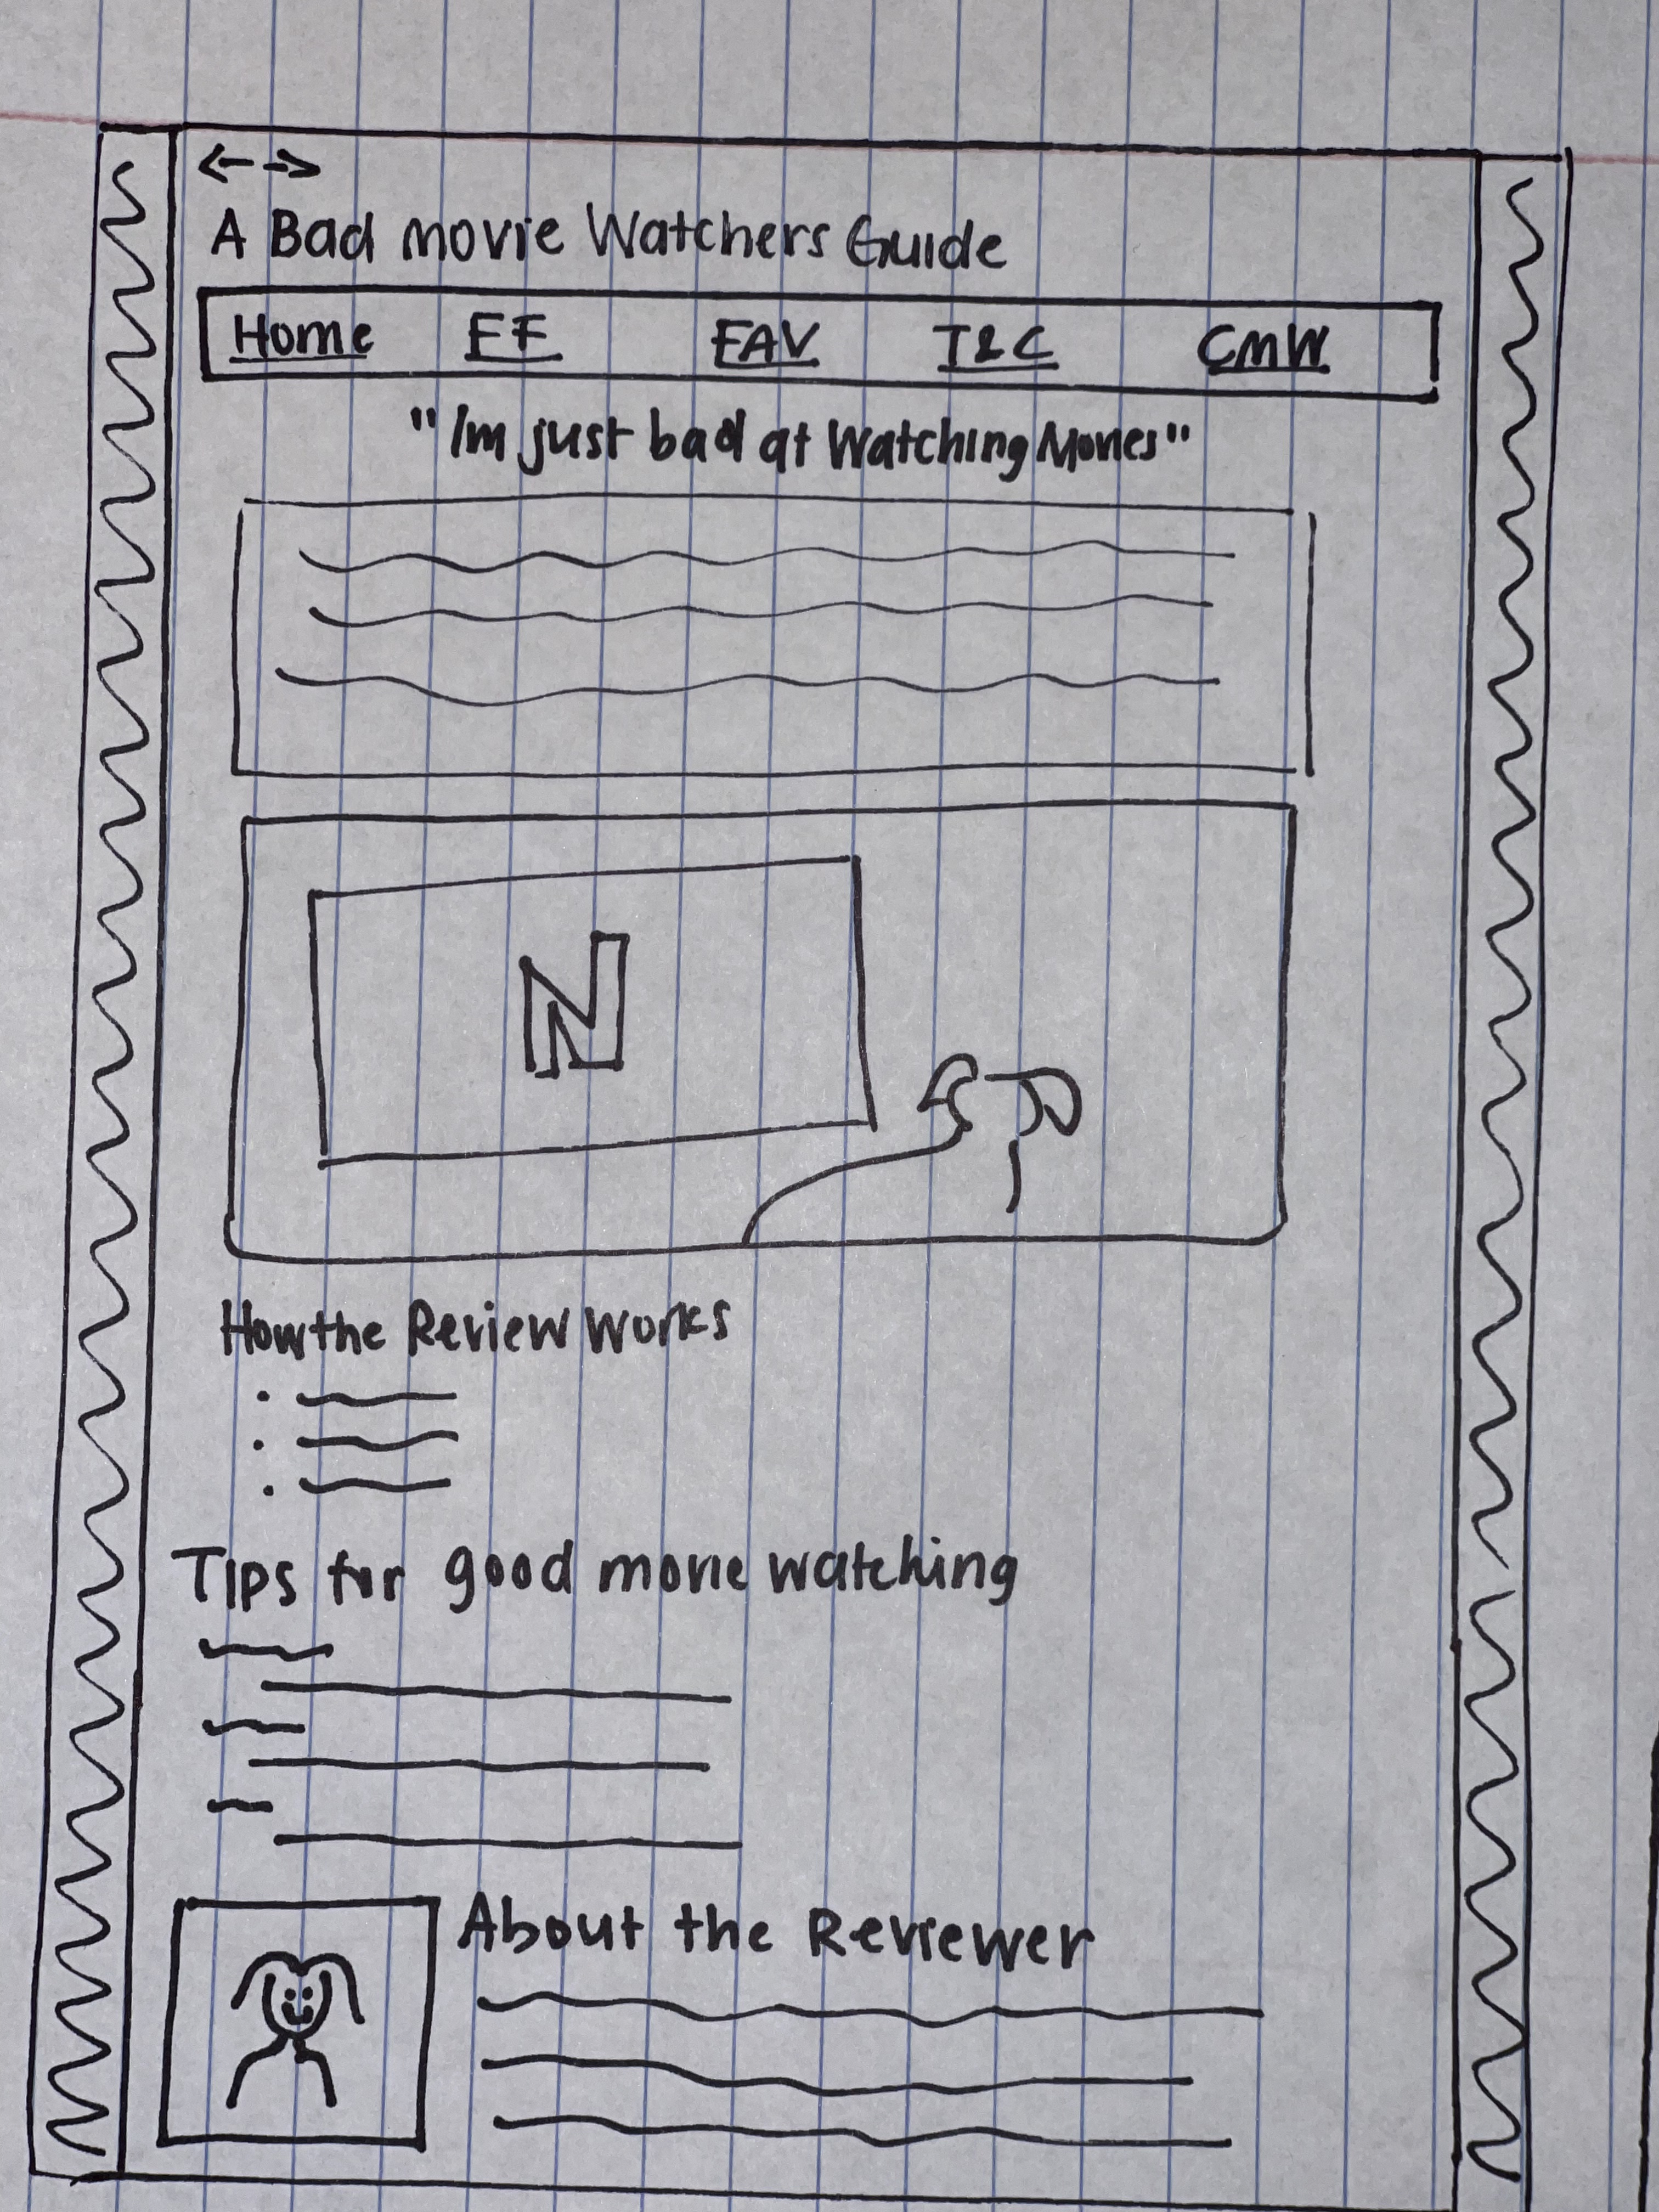 A Bad movie Watchers Guide
Home EF FAV T&C CMW
"Im just bad at Watching Movies"
N
How the Review Works
Tips for good movie watching
About the Reviewer